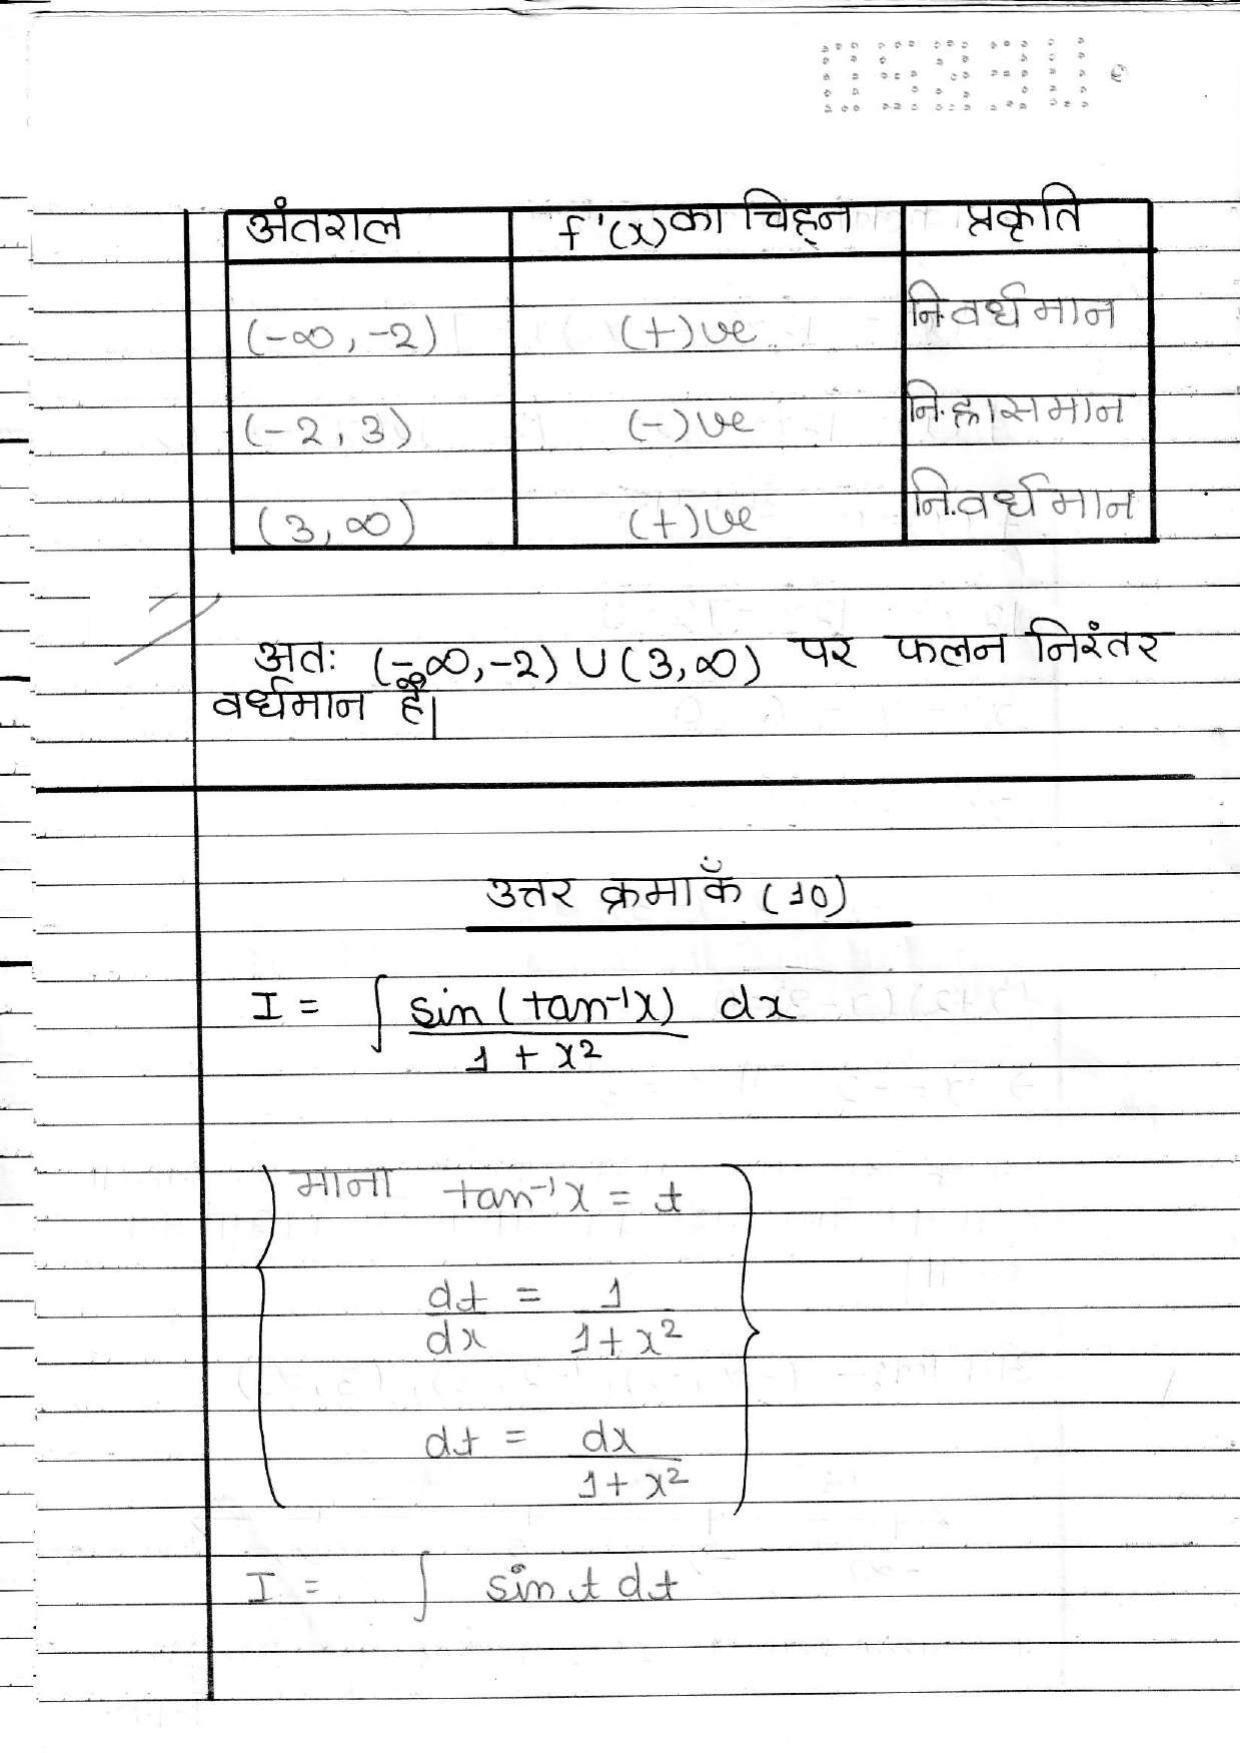 अंतराल f'(x) का चिह्न प्रकृति
(-∞, -2) (+)ve नि.वर्धमान
(-2, 3) (-)ve नि.ह्रासमान
(3, ∞) (+)ve नि.वर्धमान
अतः (-∞, -2) ∪ (3, ∞) पर फलन निरंतर
वर्धमान है।
उत्तर क्रमाकँ (10)
I = ∫ sin(tan⁻¹x) dx
1 + x²
माना tan⁻¹x = t
dt = 1
dx 1+x²
dt = dx
1+x²
I = ∫ sin t dt